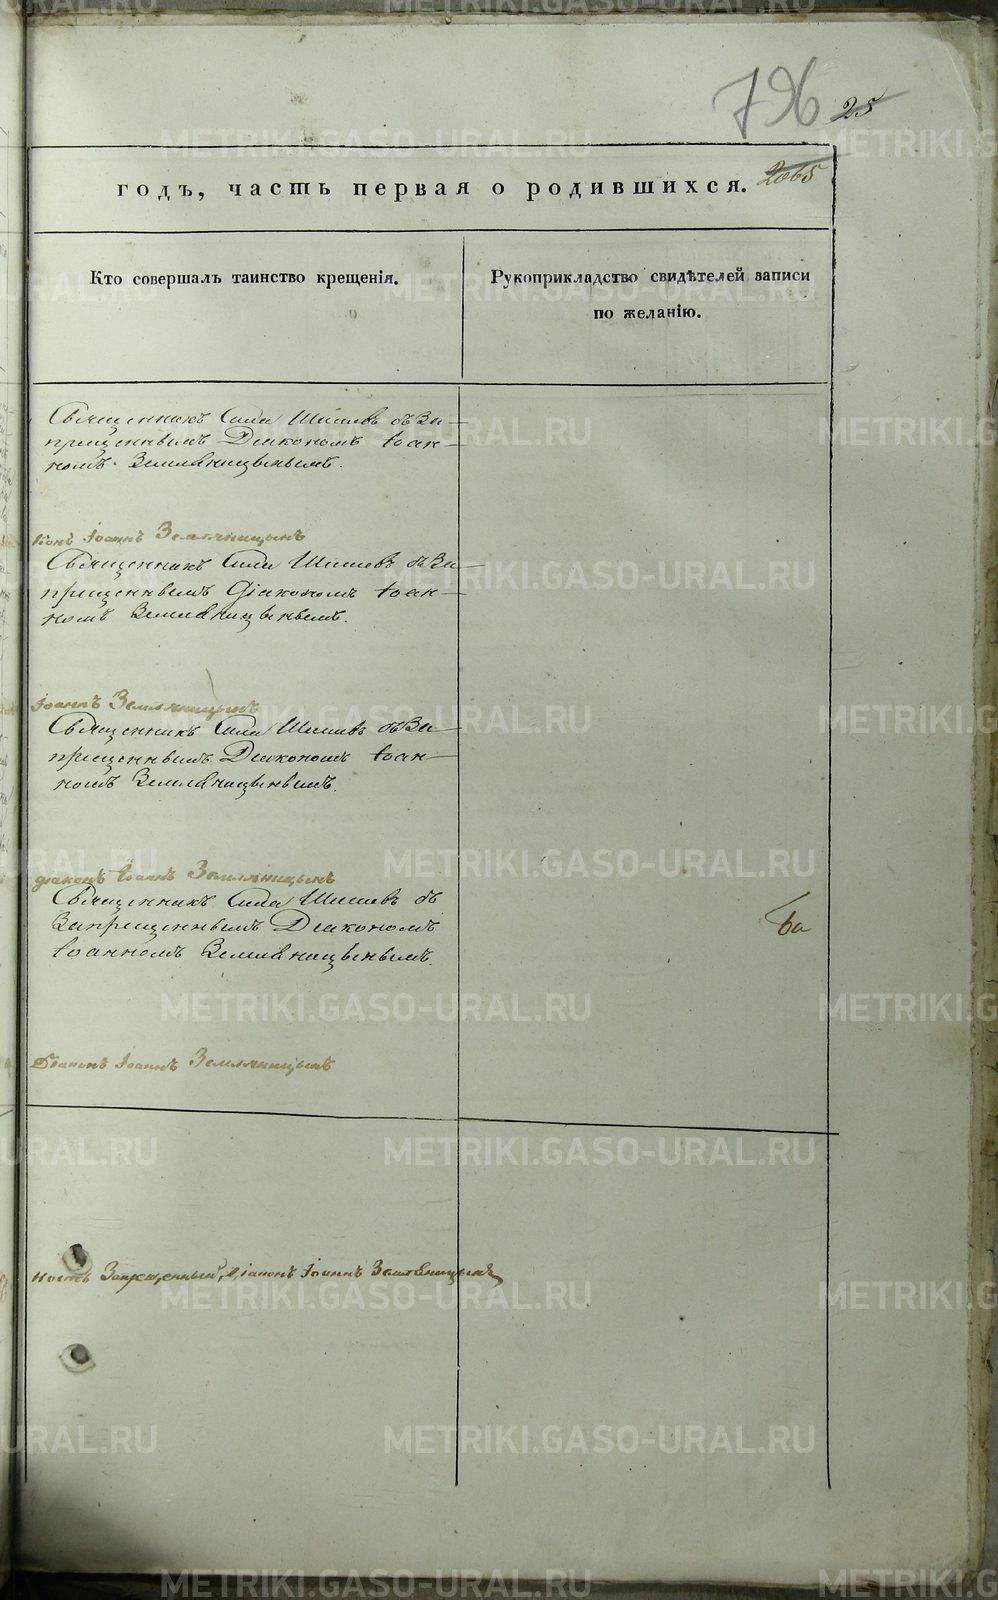 796 25
2065
годъ, часть первая о родившихся.
Кто совершалъ таинство крещенія.
Рукоприкладство свидѣтелей записи
по желанію.
Священникъ Сила Шишевъ съ за-
прещеннымъ Діакономъ Іоан-
номъ Земляницынымъ.
Іоаннъ Земляницынъ
Священникъ Сила Шишевъ съ за-
прещеннымъ Діакономъ Іоан-
номъ Земляницынымъ.
Іоаннъ Земляницынъ
Священникъ Сила Шишевъ съ за-
прещеннымъ Діакономъ Іоан-
номъ Земляницынымъ.
діаконъ Іоаннъ Земляницынъ
Священникъ Сила Шишевъ съ
Запрещеннымъ Діакономъ
Іоанномъ Земляницынымъ.
Діаконъ Іоаннъ Земляницынъ
Запрещенный Діаконъ Іоаннъ Земляницынъ
METRIKI.GASO-URAL.RU